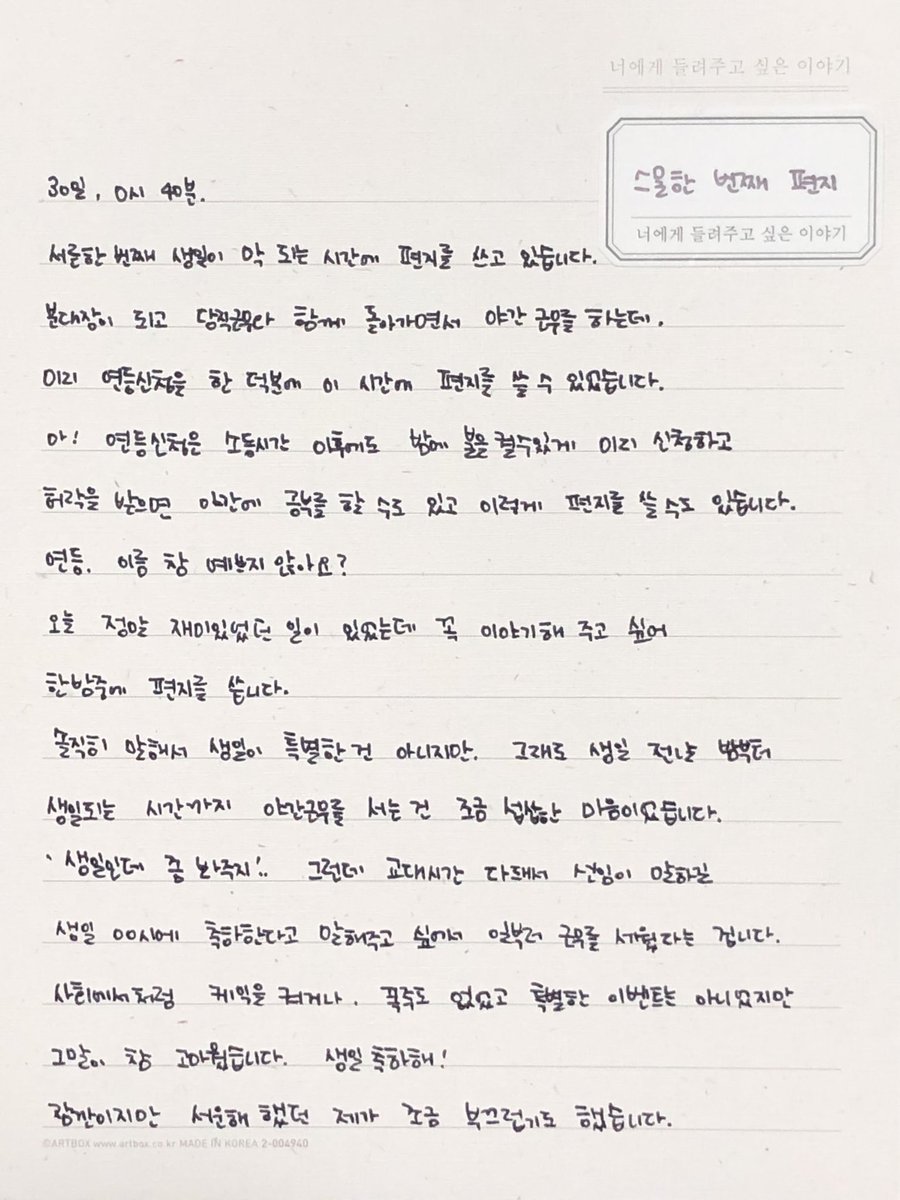 너에게 들려주고 싶은 이야기
스물한 번째 편지
너에게 들려주고 싶은 이야기
30일, 0시 40분.
서른한번째 생일이 막 되는 시간에 편지를 쓰고 있습니다.
분대장이 되고 당직근무다 함께 돌아가면서 야간 근무를 하는데,
미리 연등신청을 한 덕분에 이 시간에 편지를 쓸 수 있었습니다.
아! 연등신청은 소등시간 이후에도 밤에 불을 켤수있게 미리 신청하고
허락을 받으면 야간에 공부를 할 수도 있고 이렇게 편지를 쓸 수도 있습니다.
연등. 이름 참 예쁘지 않아요?
오늘 정말 재미있었던 일이 있었는데 꼭 이야기해 주고 싶어
한밤중에 편지를 씁니다.
솔직히 말해서 생일이 특별한건 아니지만. 그래도 생일 전날 밤부터
생일되는 시간까지 야간근무를 서는건 조금 섭섭한 마음이었습니다.
'생일인데 좀 봐주지!.. 그런데 교대시간 다돼서 선임이 말하길
생일 00시에 축하한다고 말해주고 싶어서 일부러 근무를 세웠다는 겁니다.
사회에서처럼 케익을 켜거나, 폭죽도 없었고 특별한 이벤트는 아니었지만
그말이 참 고마웠습니다. 생일 축하해!
잠깐이지만 서운해 했던 제가 조금 부끄럽기도 했습니다.
©ARTBOX www.artbox.co.kr MADE IN KOREA 2-004940